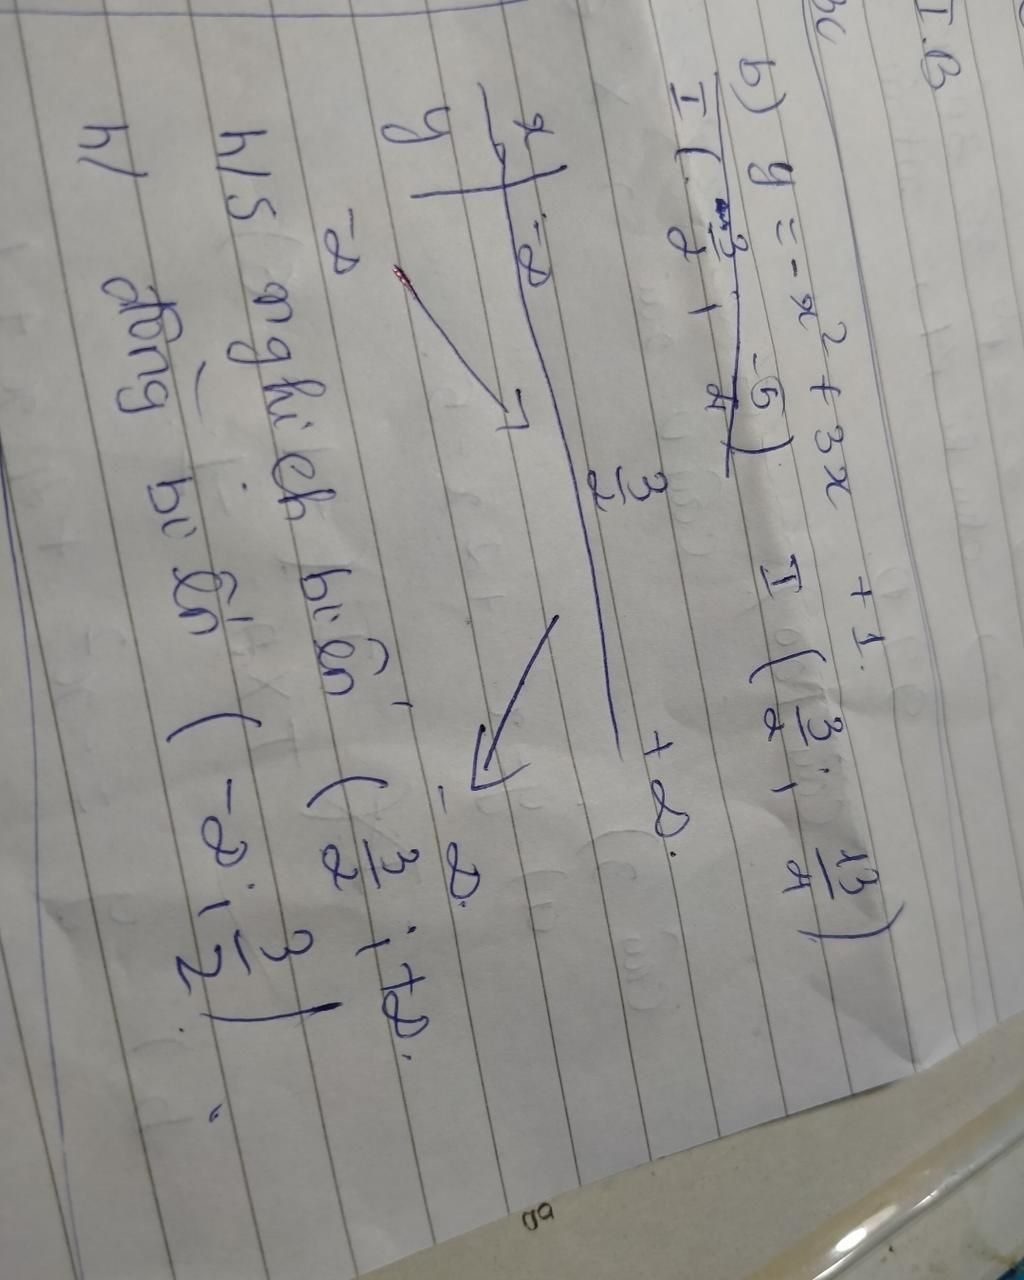 I.B
b) y = -x² + 3x + 1.
I ( 3/2 ; 13/4 )
I ( -3/2 ; -5/4 )
x | -∞ 3/2 +∞.
y | -∞ -∞.
h/s nghịch biến ( 3/2 ; +∞.
h/ đồng biến ( -∞ ; 3/2 )